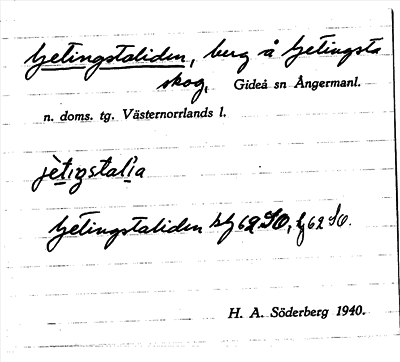 Getingstaliden, berg å Getingsta
skog, Gideå sn Ångermanl.
n. doms. tg. Västernorrlands l.
Getingstaliden bl 62 SO, lj 62 SO.
H. A. Söderberg 1940.